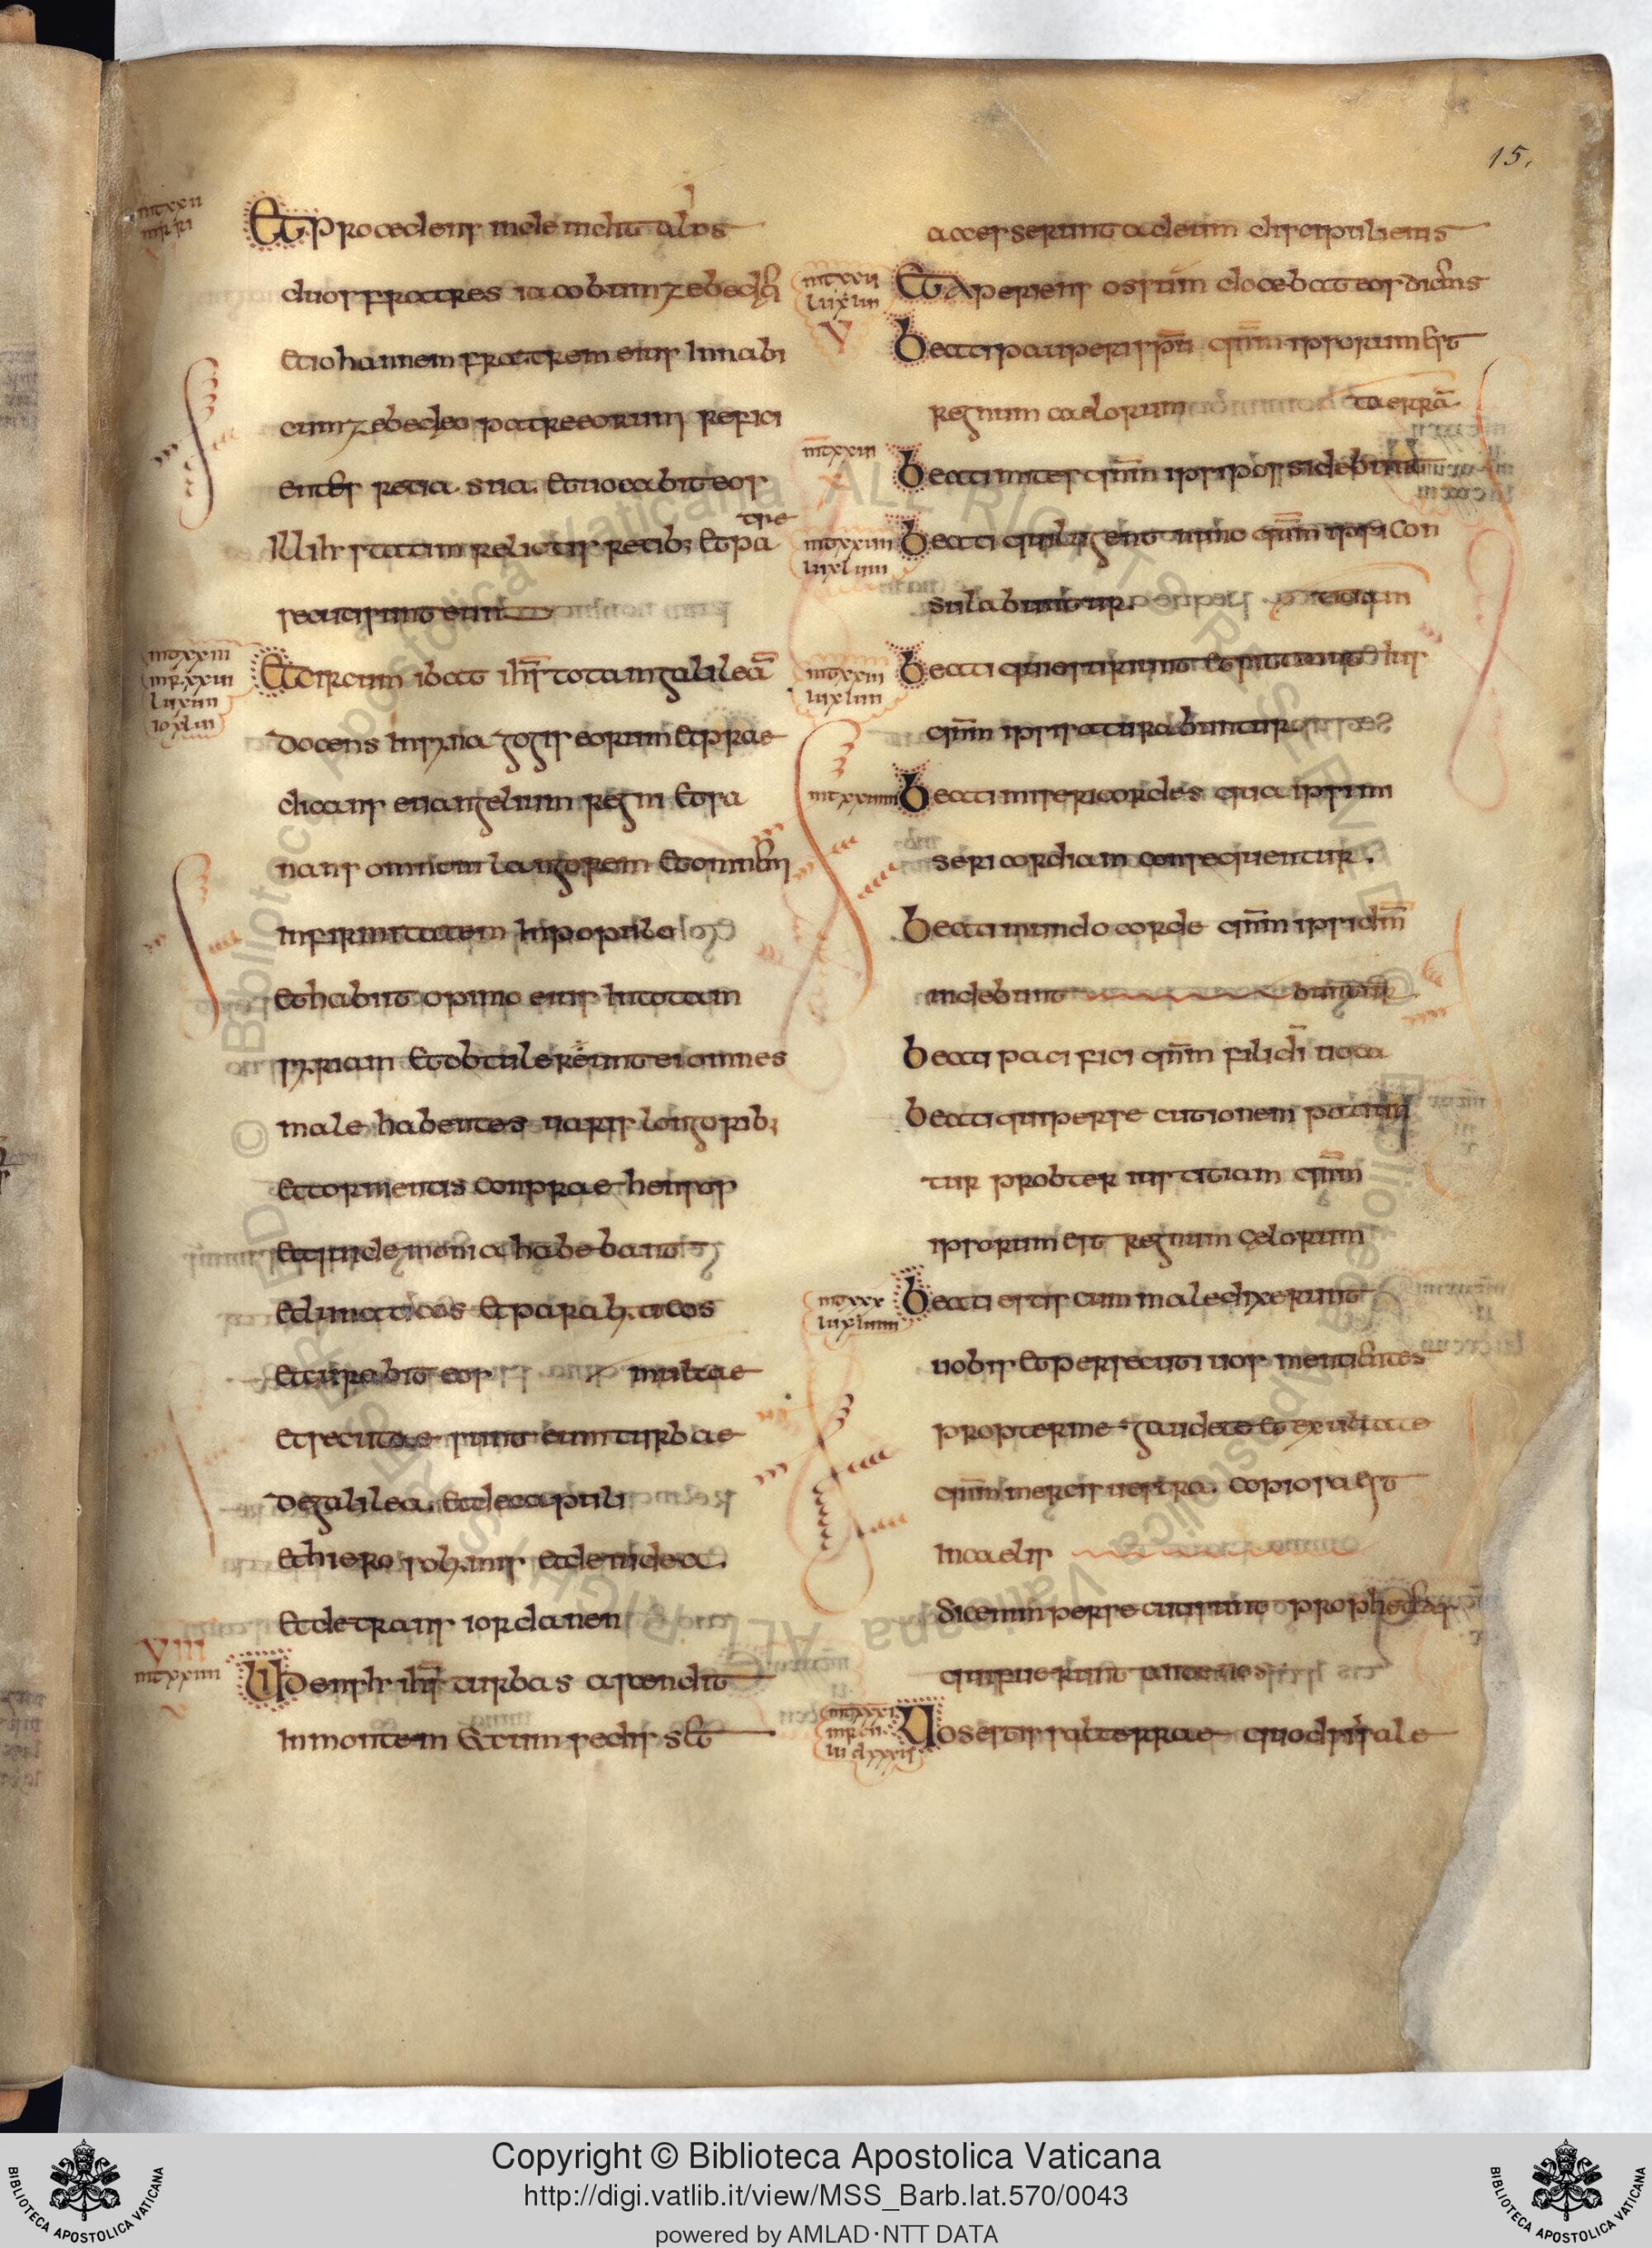 15.
mt xxii
mr xi
Et procedens inde uidit alios
duos fratres iacobum zebedei
et iohannem fratrem eius in naui
cum zebedeo patre eorum refici
entes retia sua. et uocabit eos
illi h̄ statim relictis retib; et pa
tre
secuti sunt eum
mt xxiii
mr xxiii
lu xiiii
io xlui
Et circum ibat ihs̄ totam galileā
docens in sinagogis eorum et prae
dicans euangelium regni et sa
nans omnem langorem et omnem
infirmitatem in populo
et habiit opinio eius in totam
syriam et obtulerunt ei omnes
male habentes uariis langorib;
et tormentis conpraehensos
et qui demonia habebant
et lunaticos et paralyticos
et curabit eos multae
et secutae sunt eum turbae
de galilea. et decapuli
et hierosolymis et de iudea.
et de trans iordanen
VIII
mt xxiiii
Uidens h̄ ihs̄ turbas ascendit
in montem & cum sedisset
accesserunt ad eum discipuli eius
mt xxu
lu xlui
V
Et aperiens os suum docebat eos dicens
Beati pauperes spū qnm̄ ipsorum est
regnum caelorum terrā
mt xxui
Beati mites qnm̄ ipsi possidebunt
mt xxuii
lu xluii
Beati qui lugent nunc qnm̄ ipsi con
sulabuntur. titiam
mt xxuiii
lu xluii
Beati qui esuriunt et sitiunt ius
qnm̄ ipsi saturabuntur
mt xxuiiii
Beati misericordes quia ipsi mi
sericordiam consequentur.
Beati mundo corde qnm̄ ipsi dm̄
uidebunt buntur
Beati pacifici qnm̄ fili dī uoca
Beati qui persecutionem patiun
tur probter iustitiam qnm̄
ipsorum est regnum celorum
mt xxx
lu xluiii
Beati estis cum maledixerunt
uobis et persecuti uos mentientes
propter me gaudete et exultate
qnm̄ mercis uestra. copiosa est
in caelis
sic enim persecuti sunt prophetas
qui fuerunt ante uos
mt xxxi
mr cii
lu clxxxu
Uos estis sal terrae quod si sale
Copyright © Biblioteca Apostolica Vaticana
http://digi.vatlib.it/view/MSS_Barb.lat.570/0043
powered by AMLAD·NTT DATA
BIBLIOTECA APOSTOLICA VATICANA
BIBLIOTECA APOSTOLICA VATICANA